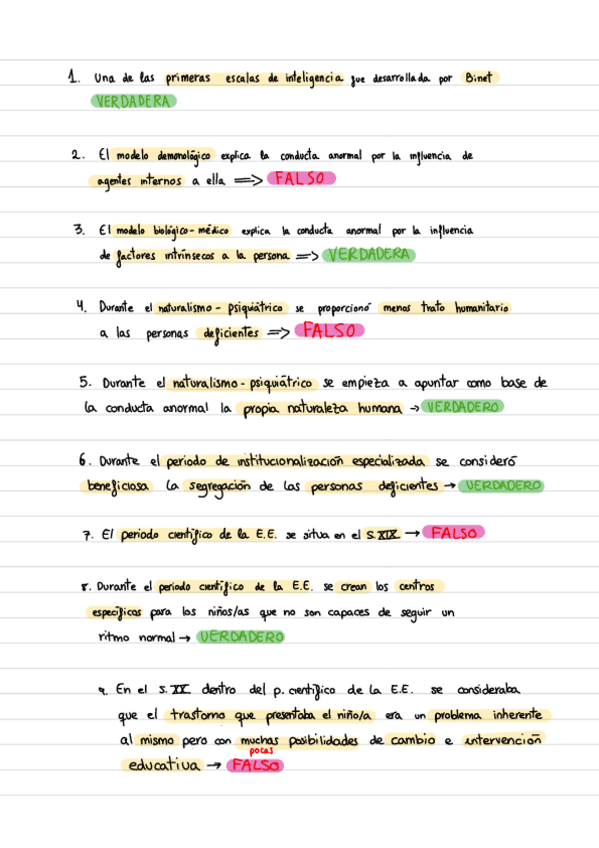 1. Una de las primeras escalas de inteligencia fue desarrollada por Binet
VERDADERA
2. El modelo demonológico explica la conducta anormal por la influencia de
agentes internos a ella => FALSO
3. El modelo biológico-médico explica la conducta anormal por la influencia
de factores intrínsecos a la persona => VERDADERA
4. Durante el naturalismo-psiquiátrico se proporcionó menos trato humanitario
a las personas deficientes => FALSO
5. Durante el naturalismo-psiquiátrico se empieza a apuntar como base de
la conducta anormal la propia naturaleza humana → VERDADERO
6. Durante el periodo de institucionalización especializada se consideró
beneficiosa la segregación de las personas deficientes → VERDADERO
7. El periodo científico de la E.E. se situa en el S.XIX → FALSO
8. Durante el periodo científico de la E.E. se crean los centros
específicos para los niños/as que no son capaces de seguir un
ritmo normal → VERDADERO
9. En el S.XX dentro del p. científico de la E.E. se consideraba
que el trastorno que presentaba el niño/a era un problema inherente
al mismo pero con muchas posibilidades de cambio e intervención
pocas
educativa → FALSO